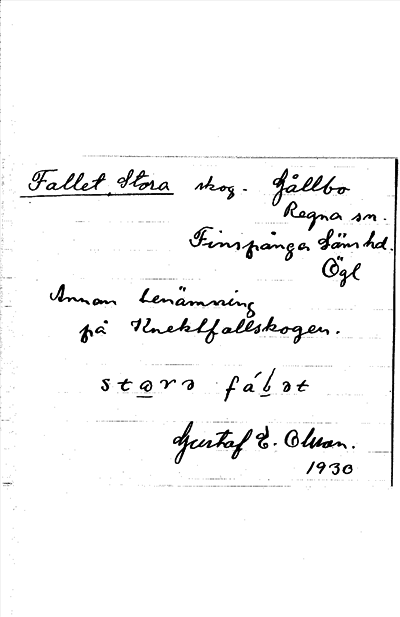 Fallet, Stora skog. Gållbo
Regna sn.
Finspånga läns hd.
Ögl
Annan benämning
på Knektfallskogen.
stɷrə fáɫət
Gustaf E. Olsson.
1930